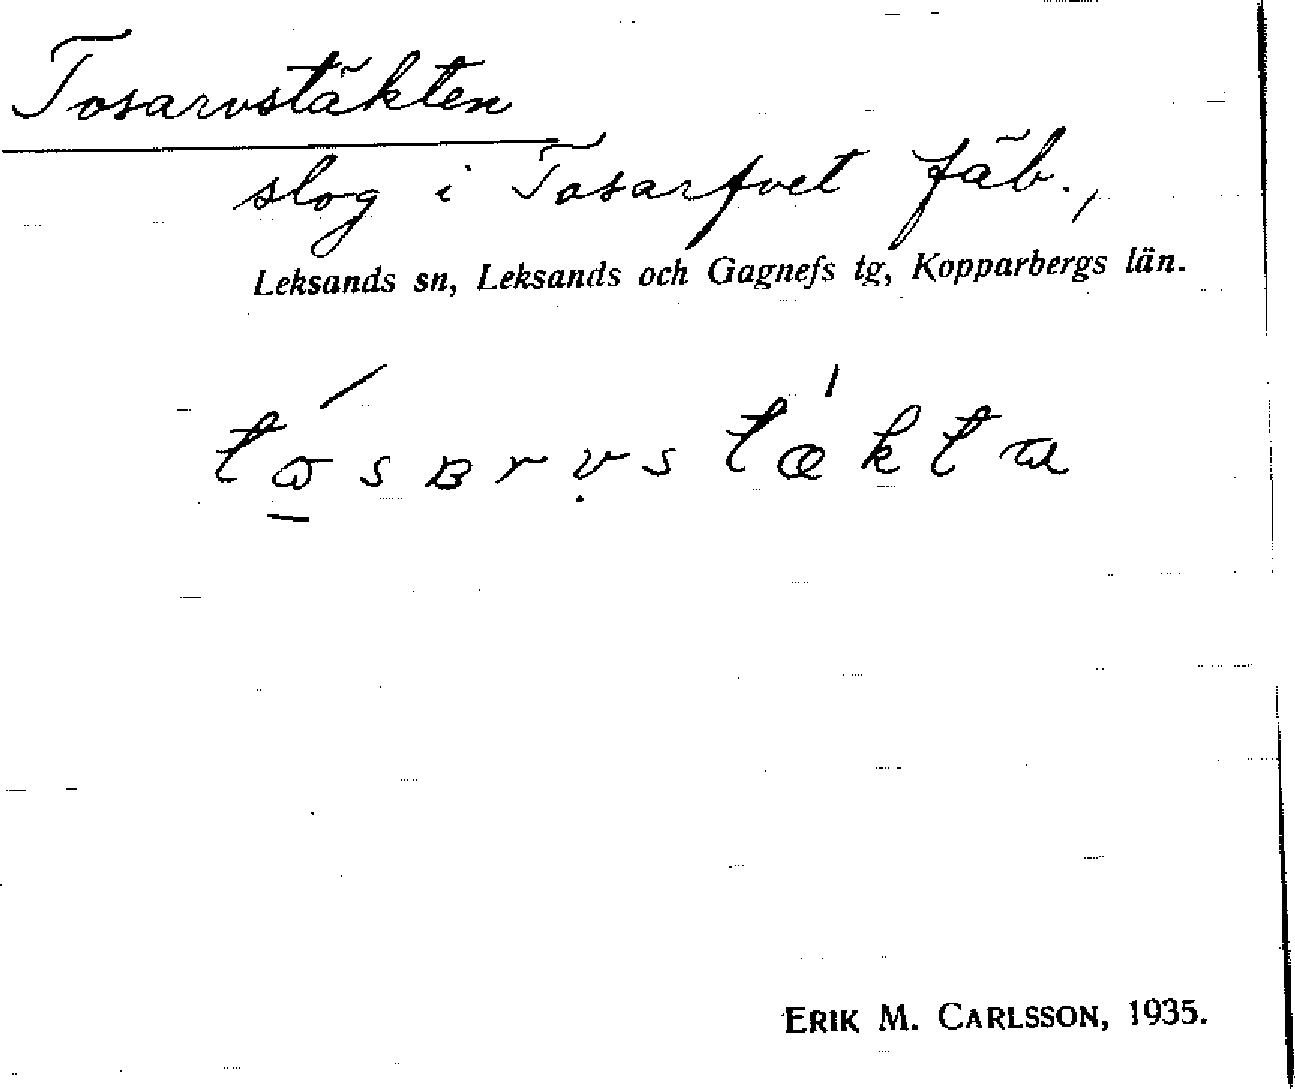 Tosarvstäkten
slog i Tosarfvet fäb.,
Leksands sn, Leksands och Gagnefs tg, Kopparbergs län.
ERIK M. CARLSSON, 1935.